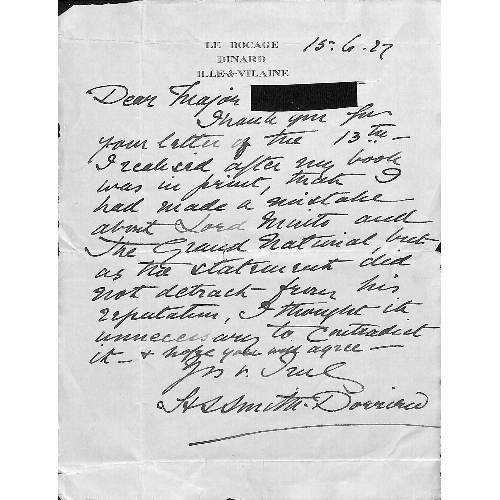 LE BOCAGE
DINARD
ILLE-&-VILAINE
15.6.27
Dear Major
Thank you for
your letter of the 13th –
I realised after my book
was in print, that I
had made a mistake
about Lord Minto and
The Grand National, but
as the statement did
not detract from his
reputation, I thought it
unnecessary to contradict
it – & hope you will agree –
Yrs v. Truly
H L Smith-Dorrien